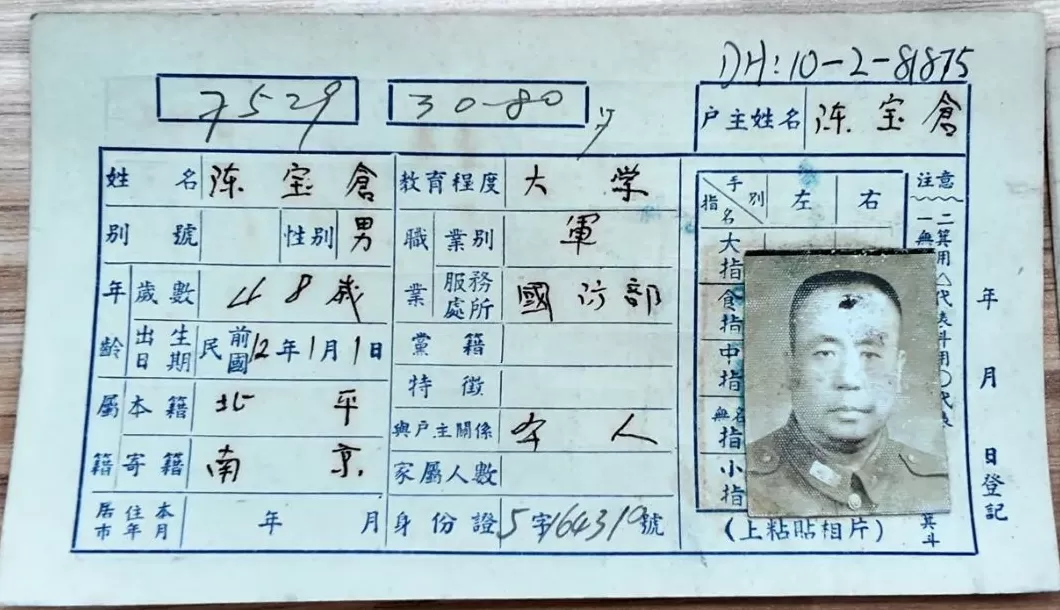 DH:10-2-81875
7529
30-80
户主姓名 陈宝倉
姓名 陈宝倉 教育程度 大学
別號 性別 男 職業 業別 軍
年齡 歲數 48歲 服務處所 國防部
出生日期 民前國12年1月1日 黨籍
屬籍 本籍 北平 特徵
與戶主關係 本人
寄籍 南京 家屬人數
居住本市年月 年 月 身份證 5字164319號
手別 指名 左 右
大指
食指
中指
無名指
小指
(上粘貼相片)
注意
一無
二箕用△代表斗用○代表
箕斗
年月日登記